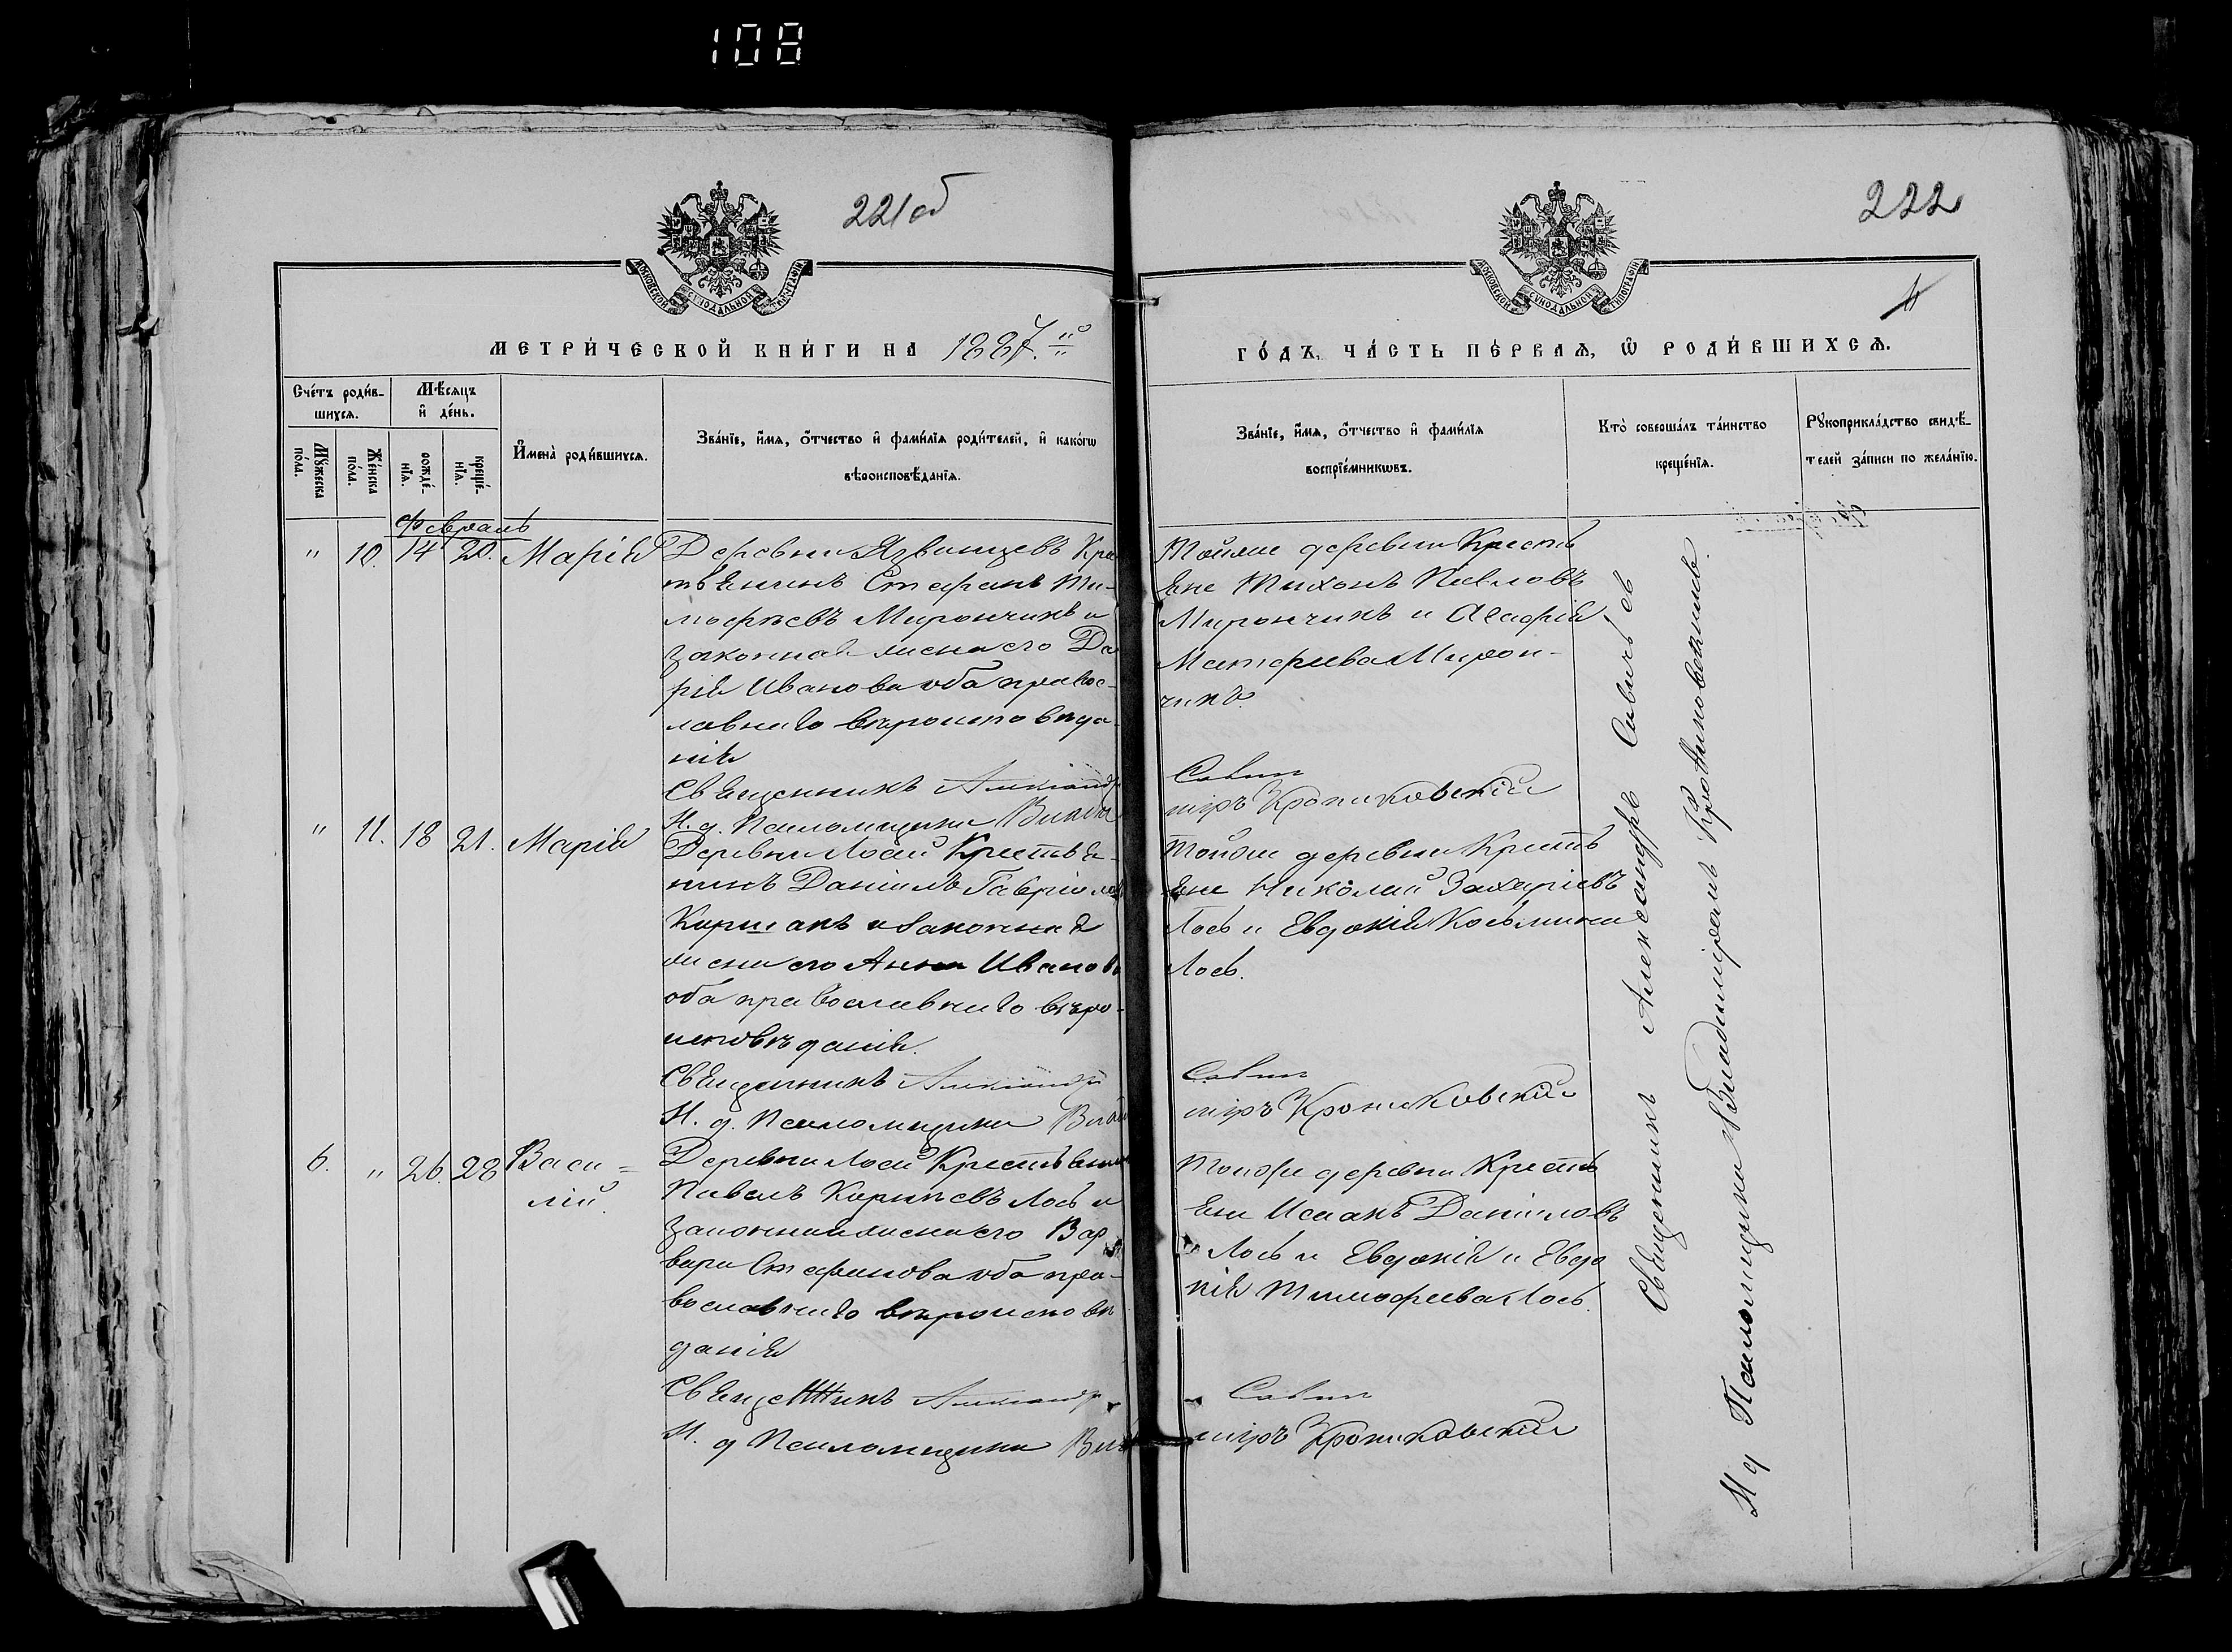 108
221об
222
МОСКОВСКОЙ СѴНОДАЛЬНОЙ ТИПОГРАФІИ
МОСКОВСКОЙ СѴНОДАЛЬНОЙ ТИПОГРАФІИ
МЕТРИ́ЧЕСКОЙ КНИ́ГИ НА 1887.й
ГО́ДЪ, ЧА́СТЬ ПЕ́РВАѦ, Ѡ РОДИ́ВШИХСѦ.
Сче́тъ роди́в-
шихсѧ.
Мѣ́сѧцъ
и҆ де́нь.
Мꙋ́жеска
по́ла.
Же́нска
по́ла.
рожде́-
нїѧ.
креще́-
нїѧ.
И҆мена̀ роди́вшихсѧ.
Зва́нїе, и҆́мѧ, ѻ҆́тчество и҆ фами́лїѧ роди́телей, и҆ како́гѡ
вѣроисповѣ́данїѧ.
Зва́нїе, и҆́мѧ, ѻ҆́тчество и҆ фами́лїѧ
воспрїе́мникѡвъ.
Кто̀ соверша́лъ та́инство
креще́нїѧ.
Рꙋкоприкла́дство свидѣ́-
телей за́писи по жела́нїю.
Февраль
" 10. 14 20. Марія
Деревни Язвинцевъ Кре
стьянинъ Стефанъ Ти-
мофѣевъ Мирончикъ и
законная жена его Да
рія Иванова оба правос-
лавнаго вѣроисповѣда
нія
Священникъ Александръ
И. д. Псаломщика
Тойже деревни Кресть
яне Тихонъ Павловъ
Мирончикъ и Агафія
Матфеева Мирон-
чикъ.
Савич
міръ Крониковскій
" 11. 18 21. Марія
Деревни Лоси Крестья-
нинъ Даніилъ Гавріилов
Каршакъ и законная
жена его Анна Иванова
оба православнаго вѣро-
исповѣданія.
Священникъ Александръ
И. д. Псаломщика
Тойже деревни Кресть
яне Николай Захаріевъ
Лось и Евдокія Козьмина
Лось.
Савич
міръ Крониковскій
6. " 26. 28 Васи=
лій.
Деревни Лоси Крестьянин
Павелъ Карповъ Лось и
законная жена его Вар
вара Стефанова оба пра-
вославнаго вѣроисповѣ
данія
Священникъ Александръ
И. д Псаломщика
Тойже деревни Кресть
яне Исаакъ Даниловъ
Лось и Евдокія и Евдо
кія Тимофеева Лось.
Савич
міръ Крониковскій
Священникъ Александръ Савичъ
И д Псаломщика Владиміръ